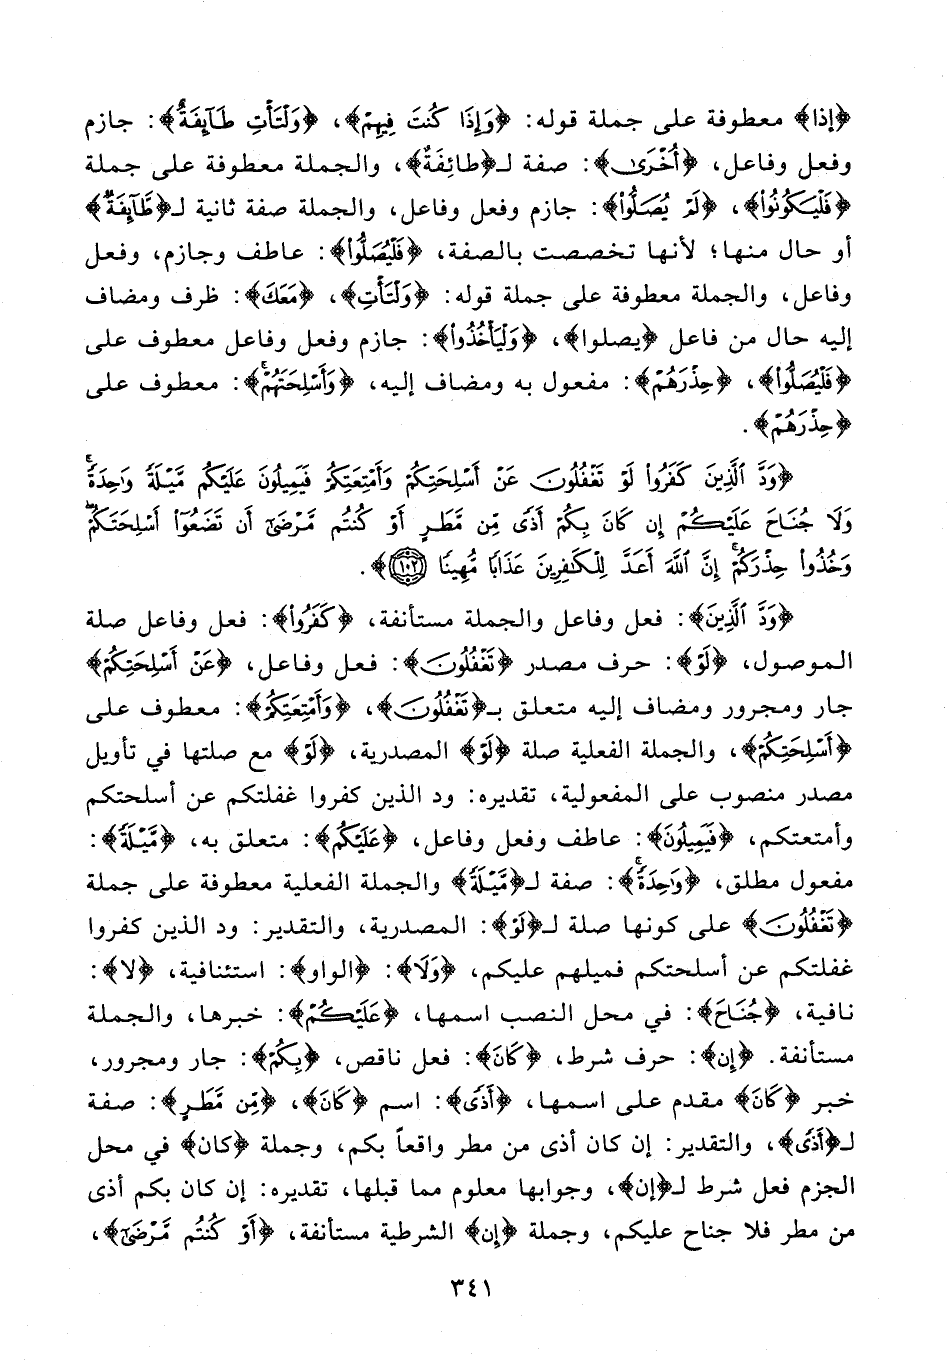 ﴿إذا﴾ معطوفة على جملة قوله: ﴿وَإِذَا كُنتَ فِيهِمْ﴾، ﴿وَلْتَأْتِ طَآئِفَةٌ﴾: جازم
وفعل وفاعل، ﴿أُخْرَىٰ﴾: صفة لـ﴿طائِفَةٌ﴾، والجملة معطوفة على جملة
﴿فَلْيَكُونُوا۟﴾، ﴿لَمْ يُصَلُّوا۟﴾: جازم وفعل وفاعل، والجملة صفة ثانية لـ﴿طَآئِفَةٌ﴾
أو حال منها؛ لأنها تخصصت بالصفة، ﴿فَلْيُصَلُّوا۟﴾: عاطف وجازم، وفعل
وفاعل، والجملة معطوفة على جملة قوله: ﴿وَلْتَأْتِ﴾، ﴿مَعَكَ﴾: ظرف ومضاف
إليه حال من فاعل ﴿يصلوا﴾، ﴿وَلْيَأْخُذُوا۟﴾: جازم وفعل وفاعل معطوف على
﴿فَلْيُصَلُّوا۟﴾، ﴿حِذْرَهُمْ﴾: مفعول به ومضاف إليه، ﴿وَأَسْلِحَتَهُمْ ۗ﴾: معطوف على
﴿حِذْرَهُمْ﴾.
﴿وَدَّ ٱلَّذِينَ كَفَرُوا۟ لَوْ تَغْفُلُونَ عَنْ أَسْلِحَتِكُمْ وَأَمْتِعَتِكُمْ فَيَمِيلُونَ عَلَيْكُم مَّيْلَةً وَٰحِدَةً ۚ
وَلَا جُنَاحَ عَلَيْكُمْ إِن كَانَ بِكُمْ أَذًى مِّن مَّطَرٍ أَوْ كُنتُم مَّرْضَىٰٓ أَن تَضَعُوٓا۟ أَسْلِحَتَكُمْ ۖ
وَخُذُوا۟ حِذْرَكُمْ ۗ إِنَّ ٱللَّهَ أَعَدَّ لِلْكَٰفِرِينَ عَذَابًا مُّهِينًا ١٠٢﴾.
﴿وَدَّ ٱلَّذِينَ﴾: فعل وفاعل والجملة مستأنفة، ﴿كَفَرُوا۟﴾: فعل وفاعل صلة
الموصول، ﴿لَوْ﴾: حرف مصدر ﴿تَغْفُلُونَ﴾: فعل وفاعل، ﴿عَنْ أَسْلِحَتِكُمْ﴾
جار ومجرور ومضاف إليه متعلق بـ﴿تَغْفُلُونَ﴾، ﴿وَأَمْتِعَتِكُمْ﴾: معطوف على
﴿أَسْلِحَتِكُمْ﴾، والجملة الفعلية صلة ﴿لَوْ﴾ المصدرية، ﴿لَوْ﴾ مع صلتها في تأويل
مصدر منصوب على المفعولية، تقديره: ود الذين كفروا غفلتكم عن أسلحتكم
وأمتعتكم، ﴿فَيَمِيلُونَ﴾: عاطف وفعل وفاعل، ﴿عَلَيْكُم﴾: متعلق به، ﴿مَّيْلَةً﴾:
مفعول مطلق، ﴿وَٰحِدَةً ۚ﴾: صفة لـ﴿مَّيْلَةً﴾ والجملة الفعلية معطوفة على جملة
﴿تَغْفُلُونَ﴾ على كونها صلة لـ﴿لَوْ﴾: المصدرية، والتقدير: ود الذين كفروا
غفلتكم عن أسلحتكم فميلهم عليكم، ﴿وَلَا﴾: ﴿الواو﴾: استئنافية، ﴿لا﴾:
نافية، ﴿جُنَاحَ﴾: في محل النصب اسمها، ﴿عَلَيْكُمْ﴾: خبرها، والجملة
مستأنفة. ﴿إِن﴾: حرف شرط، ﴿كَانَ﴾: فعل ناقص، ﴿بِكُمْ﴾: جار ومجرور،
خبر ﴿كَانَ﴾ مقدم على اسمها، ﴿أَذًى﴾: اسم ﴿كَانَ﴾، ﴿مِّن مَّطَرٍ﴾: صفة
لـ﴿أَذًى﴾، والتقدير: إن كان أذى من مطر واقعاً بكم، وجملة ﴿كان﴾ في محل
الجزم فعل شرط لـ﴿إن﴾، وجوابها معلوم مما قبلها، تقديره: إن كان بكم أذى
من مطر فلا جناح عليكم، وجملة ﴿إن﴾ الشرطية مستأنفة، ﴿أَوْ كُنتُم مَّرْضَىٰٓ﴾،
٣٤١